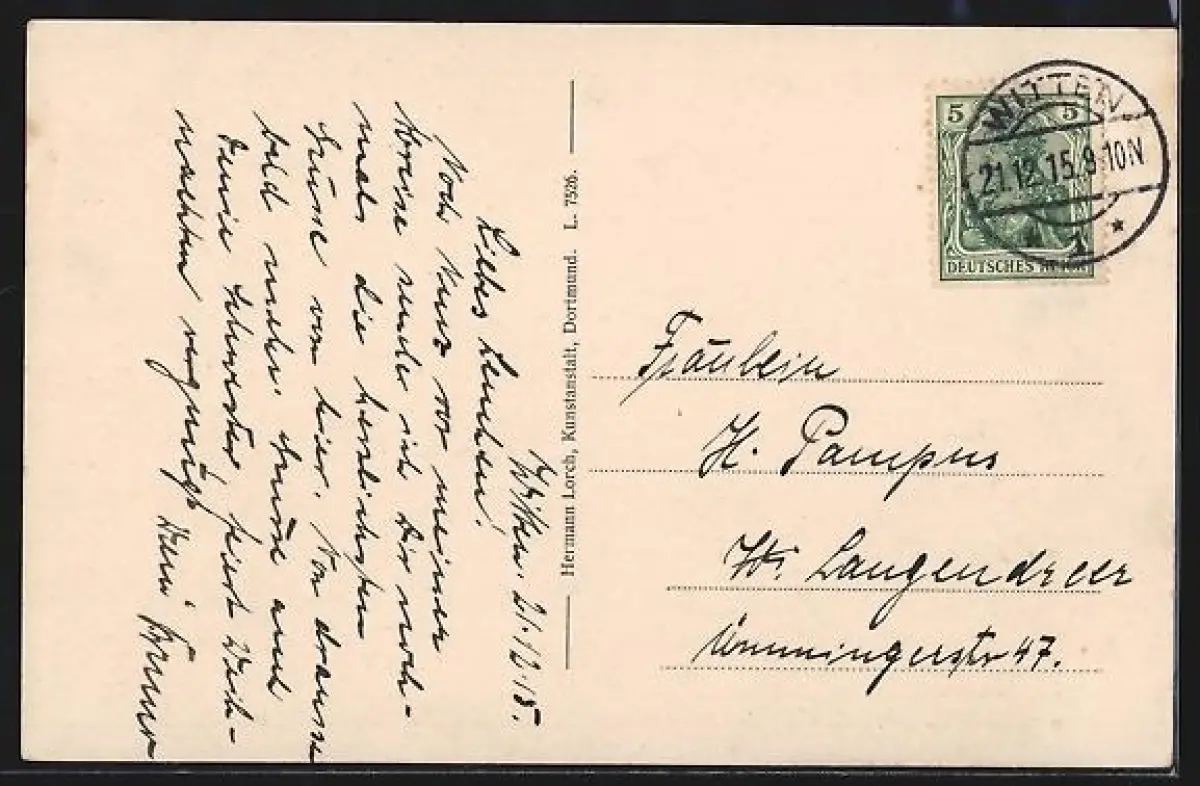 Witten. 21.12.15.
Liebes Lenchen!
Noch kurz vor meiner
Abreise sende ich Dir noch-
mals die herzlichsten
Grüsse von hier. Von draussen
bald mehr. Grüsse auch
Deine Schwester, feiert Weih-
nachten vergnügt Dein
Hermann Lorch, Kunstanstalt, Dortmund. L. 7526.
5 5
DEUTSCHES REICH
WITTEN
21.12.15.9-10N
* 1 *
Fräulein
H. Pampus
W. Langendreer
Ümmingerstr 47.